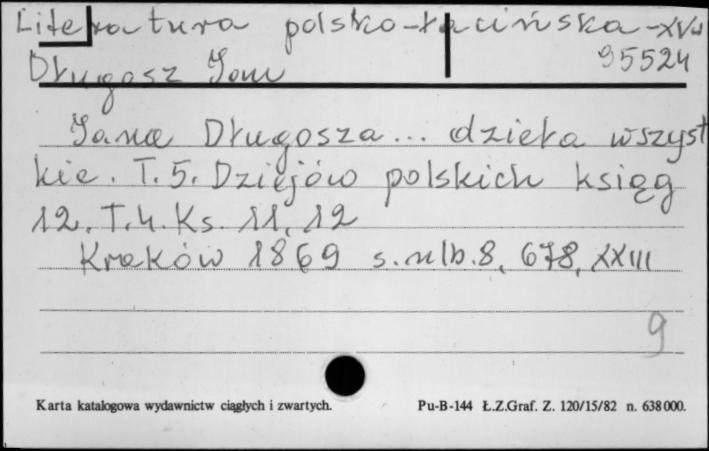 Literatura polsko-łacińska-XVw
95524
Długosz Jan
Jana Długosza... dzieła wszyst
kie. T.5. Dziejów polskich ksiąg
12. T.4. Ks. 11, 12
Kraków 1869 s. nlb. 8, 678, XXIII
9
Karta katalogowa wydawnictw ciągłych i zwartych. Pu-B-144 Ł.Z.Graf. Z. 120/15/82 n. 638 000.